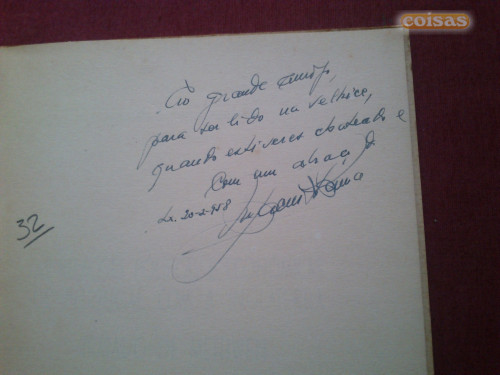 coisas
Ao grande amigo,
para ser lido na velhice,
quando estiveres chateado e
Com um abraço do
Lx. 20-2-958
32